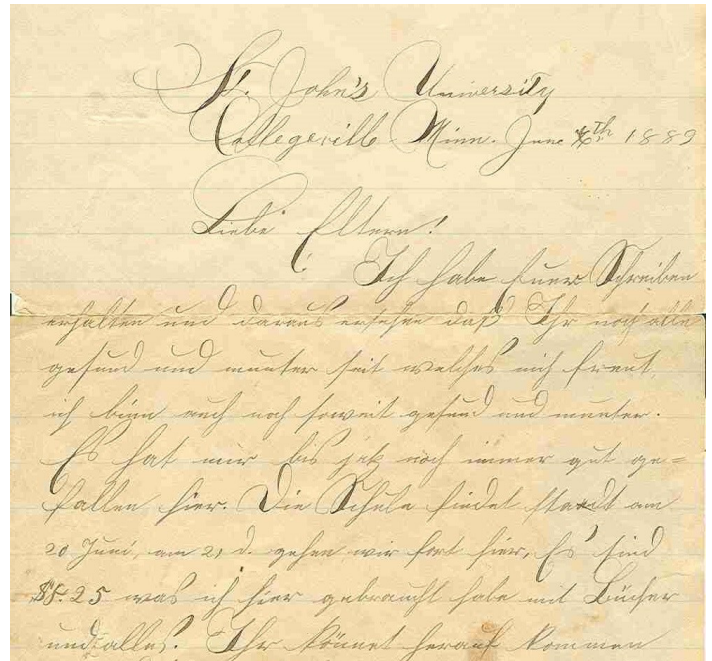 St. John's University
Collegeville Minn. June 6th 1889
Liebe Eltern!
Ich habe Euer Schreiben
erhalten und daraus ersehen daß Ihr noch alle
gesund und munter seit welches mich freut,
ich binn auch noch soweit gesund und munter.
Es hat mir bis jetz noch immer gut ge=
fallen hier. Die Schule findet stadt am
20 Juni, am 21 d. gehen wir fort hier, Es sind
$8.25 was ich hier gebraucht habe mit Bücher
und alles. Ihr könnet herauf kommen